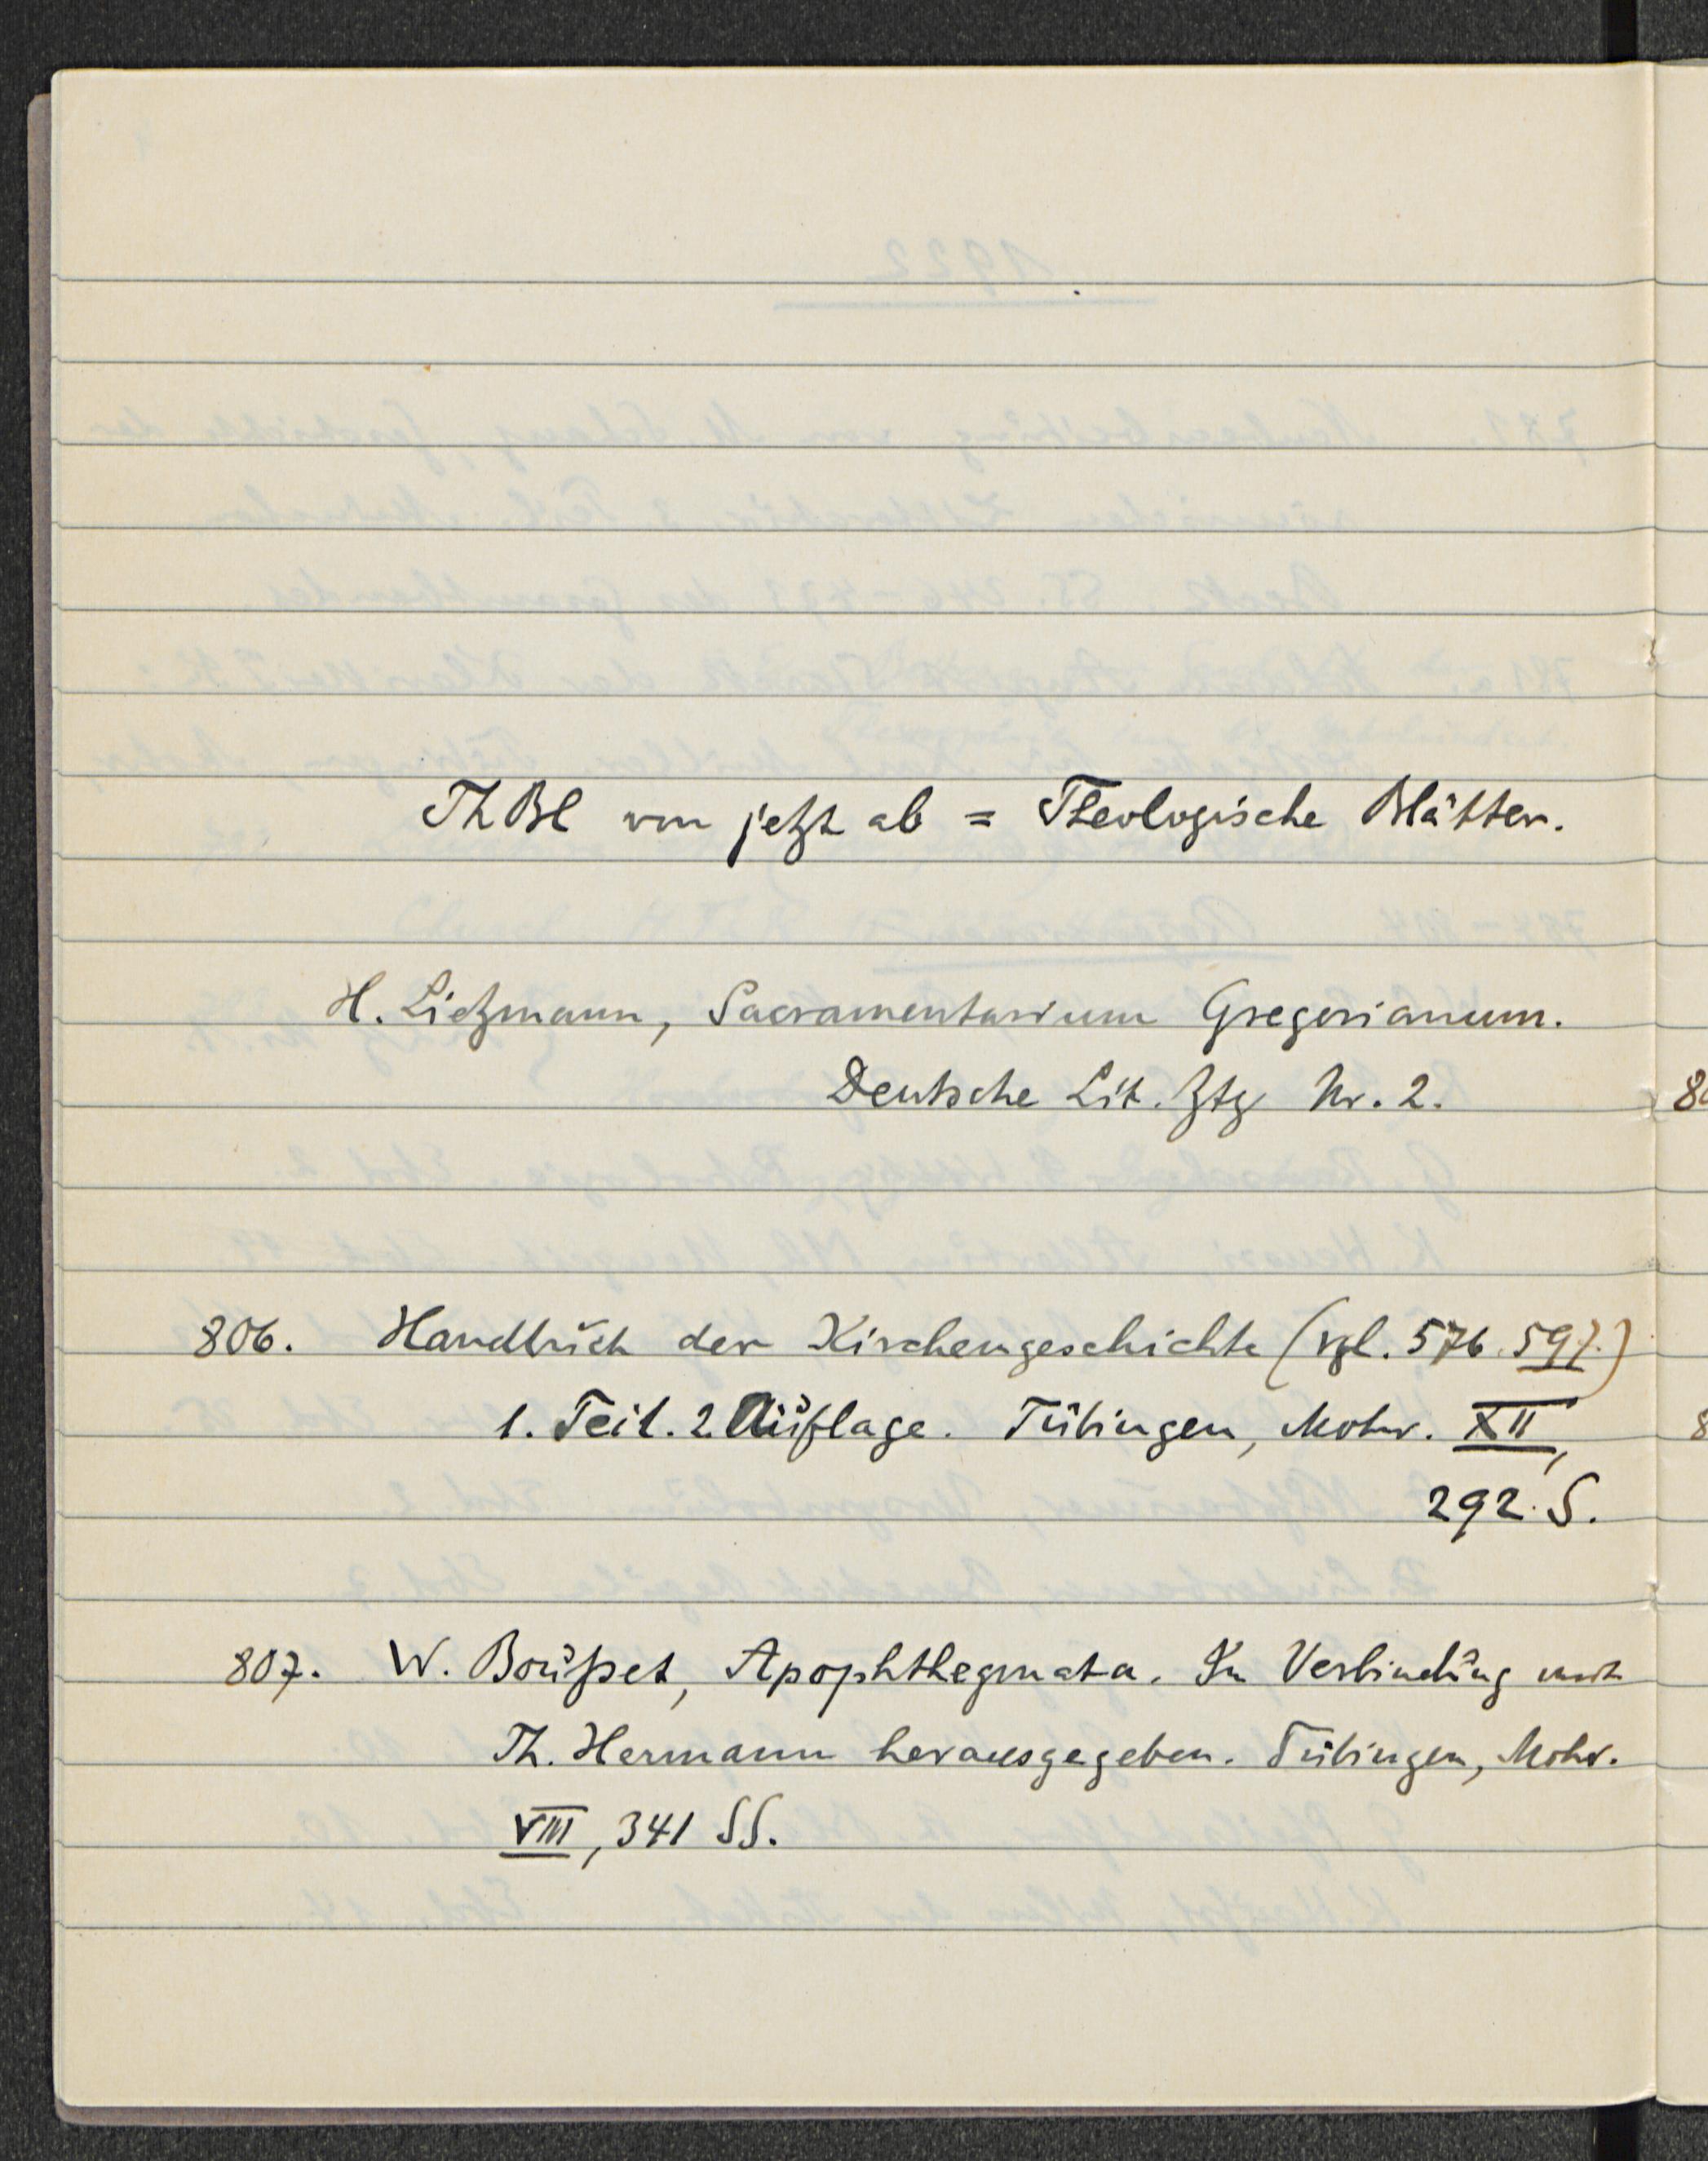 Th Bl von jetzt ab = Theologische Blätter.
H. Lietzmann, Sacramentarium Gregorianum.
Deutsche Lit. Ztg Nr. 2.
806. Handbuch der Kirchengeschichte (vgl. 576. 597.)
1. Teil. 2 Auflage. Tübingen, Mohr. XII,
292 S.
807. W. Boußet, Apophthegmata. In Verbindung mit
Th. Hermann herausgegeben. Tübingen, Mohr.
VIII, 341 SS.